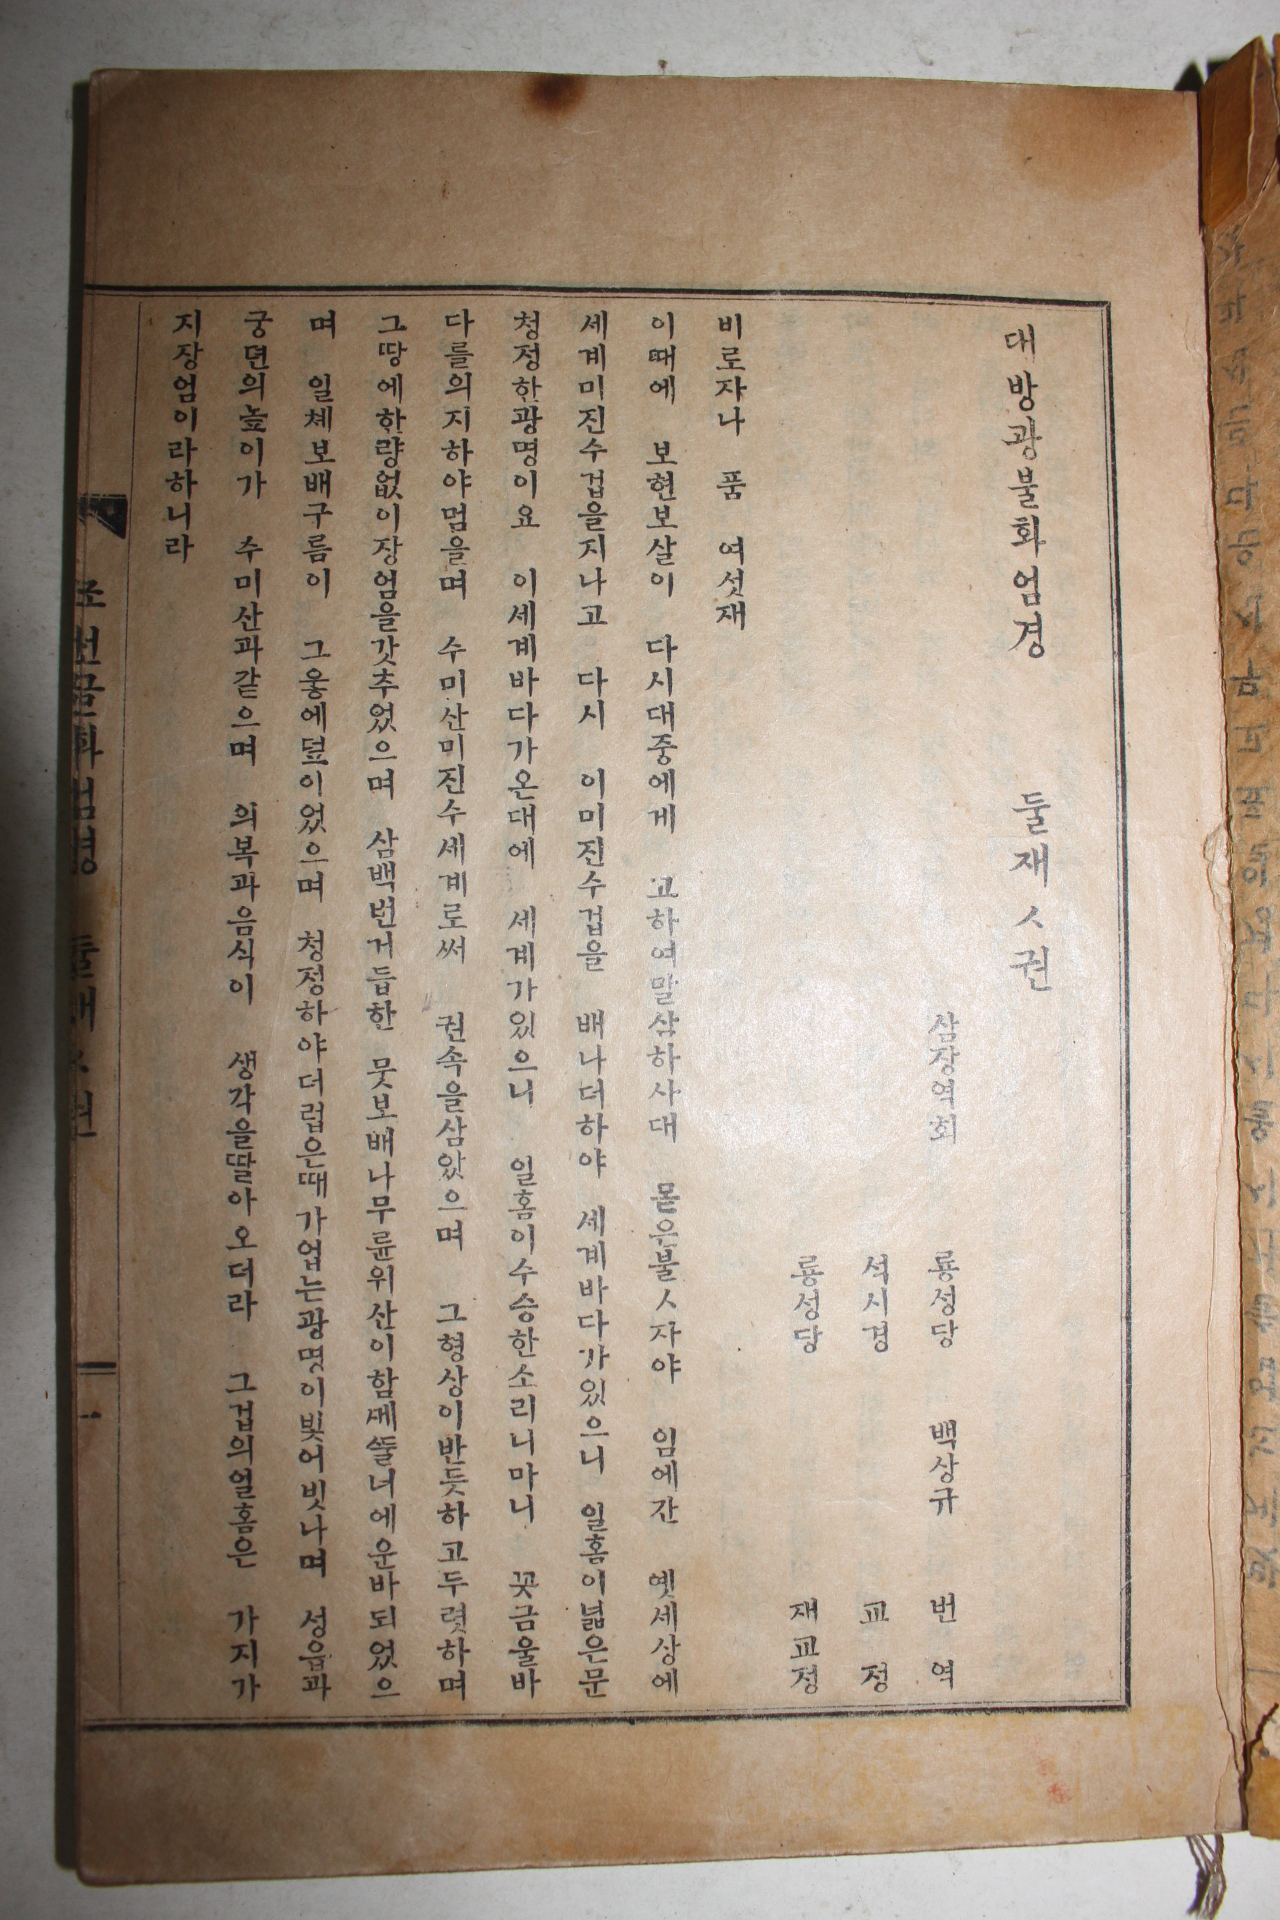 대방광불화엄경 둘재ㅅ권
삼장역회 룡성당 백상규 번역
석시경 교정
룡성당 재교정
비로자나 품 여섯재
이때에 보현보살이 다시대중에게 고하여말삼하사대 몯은불ㅅ자야 임에간 옛세상에
세계미진수겁을지나고 다시 이미진수겁을 배나더하야 세계바다가있으니 일홈이넓은문
청정한광명이요 이세계바다가온대에 세계가있으니 일홈이수승한소리니마니 꼿금울바
다를의지하야멈을며 수미산미진수세계로써 권속을삼았으며 그형상이반듯하고두렷하며
그땅에한량없이장엄을갓추었으며 삼백번거듭한 뭇보배나무륜위산이함께둘너에운바되었으
며 일체보배구름이 그웋에덮이었으며 청정하야더럽은때가업는광명이빛어빗나며 성읍과
궁뎐의높이가 수미산과같으며 의복과음식이 생각을딸아오더라 그겁의일홈은 가지가
지장엄이라하니라
조선글화엄경 둘재ㅅ권 一